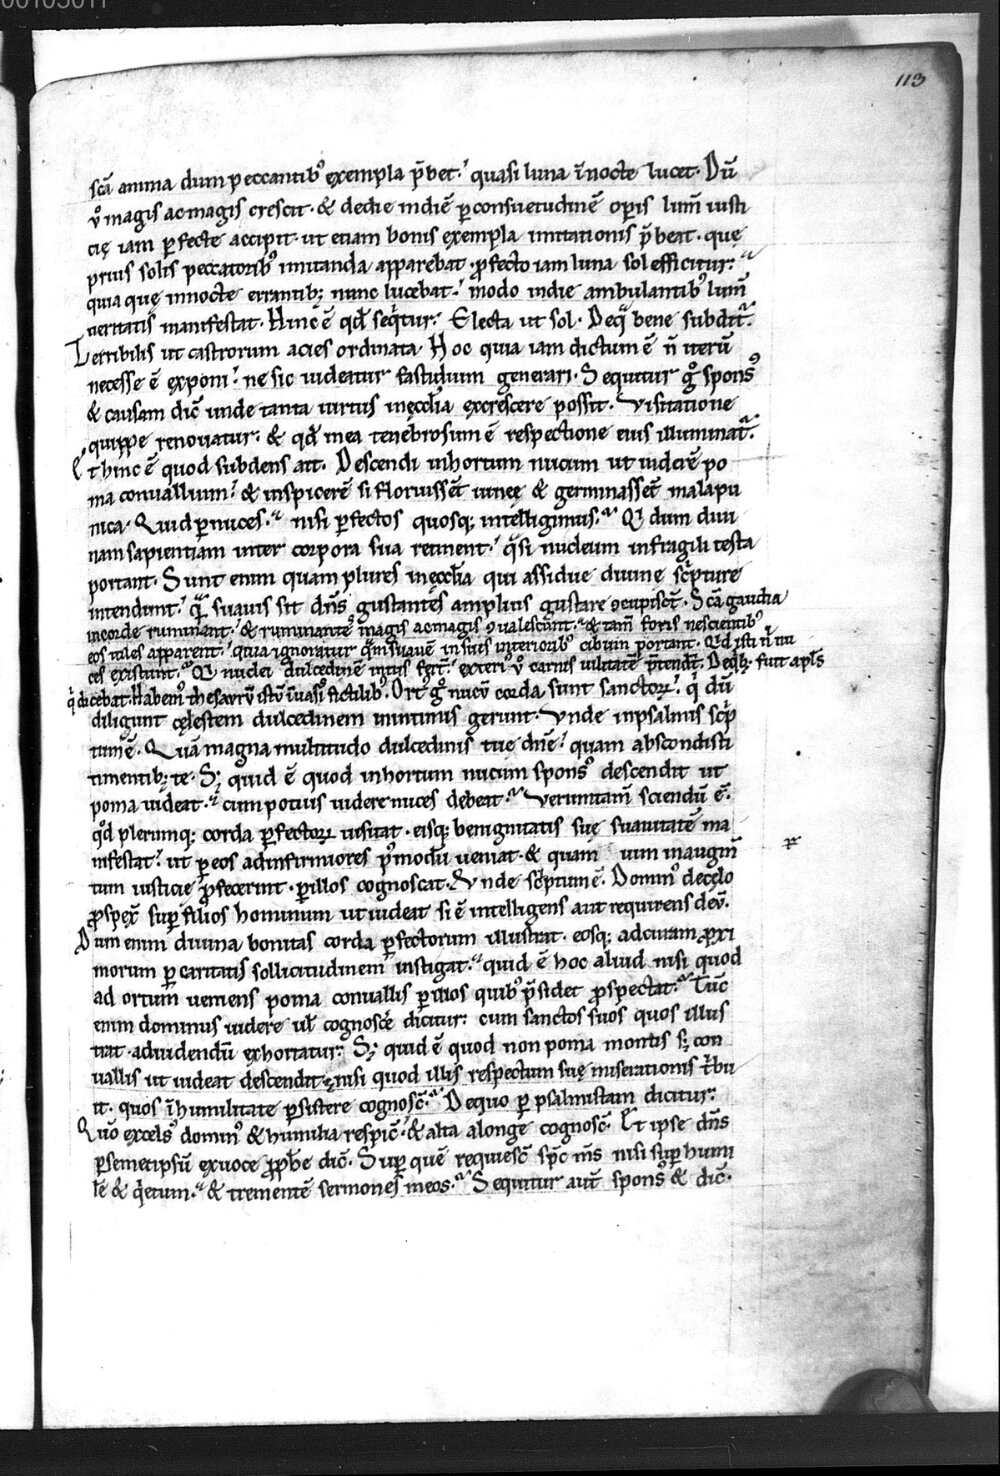 00105011
113
scā anima dum peccantib⁹ exempla p̄bet. quasi luna ī nocte lucet. Dū
v̊ magis ac magis crescit. & de die in diē ꝑ consuetudinē operis lum̄ iusti
cię iam ꝑfecte accipit. ut etiam bonis exempla imitationis p̄beat. quę
prius solis peccatorib⁹ imitanda apparebat. ꝓfecto iam luna sol efficitur.
quia quę in nocte errantib; nunc lucebat. modo in die ambulantib⁹ lum̄
ueritatis manifestat. Hinc ē qd̄ seq̄tur. Electa ut sol. De q̄ bene subdit̄.
Terribilis ut castrorum acies ordinata Hoc quia iam dictum ē n̄ iterū
necesse ē exponi. ne sic uideatur fastidium generari. Sequitur g̊ spons⁹
& causam dic̄ unde tanta uirtus in ęccl̄ia excrescere possit. Visitatione
quippe renouatur. & qd̄ in ea tenebrosum ē respectione eius illuminat̄.
Et hinc ē quod subdens ait. Descendi in hortum nucum ut uiderē po
ma conuallium. & inspicerē si floruissēt uineę & germinassēt mala pu
nica. Quid ꝑ nuces. nisi ꝑfectos quosq; intelligimus. Qi dum diui
nam sapientiam inter corpora sua retinent. q̄si nucleum in fragili testa
portant. Sunt enim quam plures in ęccl̄ia qui assidue diuinę sc̄pturę
intendunt. q̄ suauis sit dn̄s gustantes amplius gustare ꝯcupisc̄t. Scā gaudia
in corde ruminant. & ruminante⁹ magis ac magis ꝯualescunt. & tam̄ foris nescientib⁹
eos uiles apparent. quia ignoratur q̄m suauē in suis interiorib⁹ cibum portant. Qd̄ isti n̄ nu
ces existunt. Qi nuclei dulcedinē intus fer̄t. exteri⁹ v̊ carnis uilitatē p̄tendt̄. De q̄b; fuit apl̄s
q̄ dicebat. Habem⁹ thesaurū istū ī uasi⁹ fictilib⁹. Ort⁹ g̊ nucū corda sunt sanctoꝝ. q̄ dū
diligunt cęlestem dulcedinem in intimis gerunt. Vnde in psalmis sc̄p
tum ē. Quā magna multitudo dulcedinis tuę dn̄e. quam abscondisti
timentib; te. S; quid ē quod in hortum nucum spons⁹ descendit ut
poma uideat. cum potius uidere nuces debeat. Veruntam̄ sciendū ē.
qd̄ plerumq; corda ꝑfectoꝝ uisitat. eisq; benignitatis suę suauitatē ma
nifestat. ut ꝑ eos ad infirmiores p̄modū ueniat. & quam uim in augm̄
tum iusticię ꝓfecerint. ꝑ illos cognoscat. Vnde sc̄ptum ē. Domin⁹ de cęlo
ꝓspex̄ sup̄ filios hominum ut uideat si ē intelligens aut requirens dev̄.
Dum enim diuina bonitas corda ꝑfectorum illustrat. eosq; ad curam ꝓxi
morum ꝑ caritatis sollicitudinem instigat. quid ē hoc aliud nisi quod
ad ortum ueniens poma conuallis ꝑ illos quib⁹ p̄sidet ꝓspectat. Tūc
enim dominus uidere ul̄ cognosce dicitur. cum sanctos suos quos illus
trat. ad uidendū exhortatur. S; quid ē quod non poma montis s; con
uallis ut uideat descendit. nisi quod illis respectum suę miserationis t̄bu
it. quos ī humilitate ꝑsistere cognosc̄. De quo ꝑ psalmistam dicitur.
Quō excels⁹ domin⁹ & humilia respic̄. & alta a longe cognosc̄. Et ipse dn̄s
ꝑ semetipsū ex uoce ꝓph̄e dic̄. Sup̄ quē requiesc̄ sp̄c m̄s nisi sup̄ humi
lē & q̄etum. & trementē sermones meos. Sequitur aut̄ spons⁹ & dic̄.